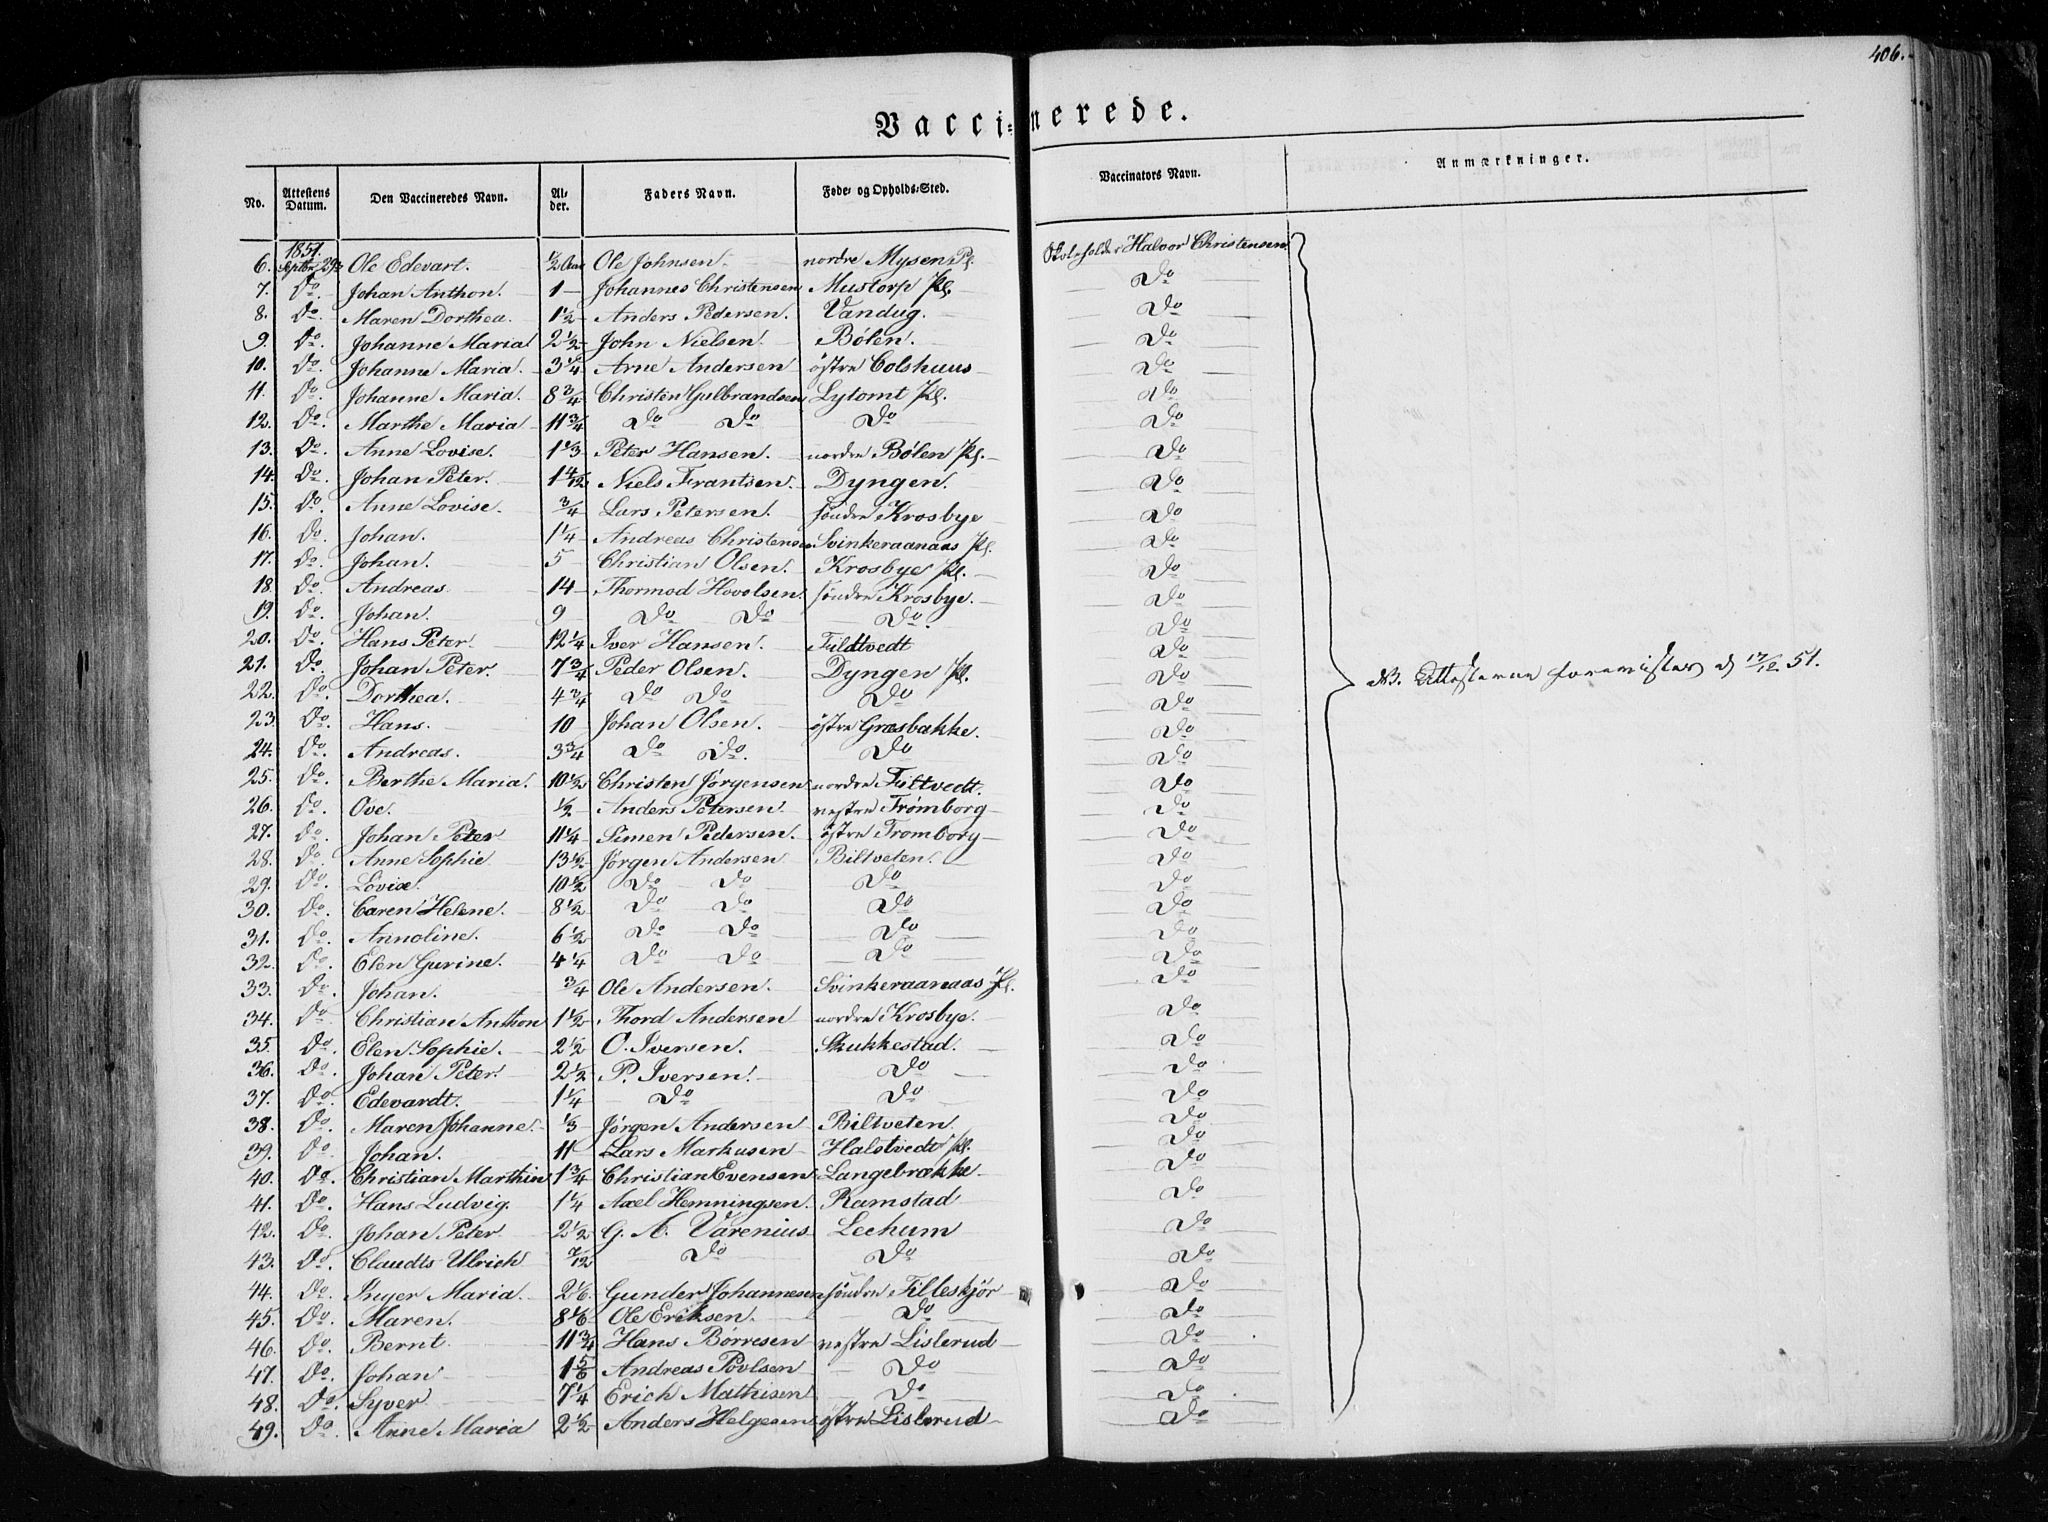 406.
Vaccinerede.
No. Attestens Datum. Den Vaccineredes Navn. Alder. Faders Navn. Føde- og Opholds-Sted. Vaccinators Navn. Anmærkninger.
1851.
6. Septbr 29 Ole Edevart. ½ Ole Johnsen. nordre Mysen Pl. Skoleholder Halvor Christensen
7. Do. Johan Anthon. 1 Johannes Christensen Mustorp Pl. Do
8. Do. Maren Dorthea. 1½ Anders Pedersen. Vandug. Do
9. Do. Johanne Maria 2½ John Nielsen. Bølen. Do
10. Do. Johanne Maria. 3¼ Arne Andersen østre Colshuus Do
11. Do. Johanne Maria. 8¾ Christen Gulbrandsen Lytomt Pl. Do
12. Do. Marthe Maria 11¾ Do Do Do Do
13. Do. Anne Lovise. 1⅓ Peter Hansen. nordre Bølen Pl. Do
14. Do. Johan Peter. 1 4/12 Niels Frantsen. Dyngen. Do
15. Do. Anne Lovise. ¾ Lars Petersen. søndre Krosbye Do
16. Do. Johan. 1¼ Andreas Christensen Svinkeraanaas Pl. Do
17. Do. Johan. 5 Christian Olsen. Krosbye Pl. Do
18. Do. Andreas. 14 Thormod Hovelsen. søndre Krosbye. Do
19. Do. Johan. 9 Do Do Do. Do
20. Do. Hans Peter. 12¼ Iver Hansen. Fildtvedt Do
21. Do. Johan Peter. 7¾ Peder Olsen. Dyngen Pl. Do NB. Attesterne foreviister d 17/12 51.
22. Do. Dorthea. 4¾ Do Do Do Do
23. Do. Hans. 10 Johan Olsen. østre Græsbakke. Do
24. Do. Andreas. 3¾ Do Do. Do Do
25. Do. Berthe Maria. 10½ Christen Jørgensen nordre Filtvedt. Do
26. Do. Ove. ½ Anders Petersen. vestre Trømborg Do
27. Do. Johan Peter 11¼ Simen Pedersen. østre Tromborg Do
28. Do. Anne Sophie 13½ Jørgen Andersen Biltveten. Do
29. Do. Lovise. 10½ Do Do Do Do
30. Do. Caren Helene. 8½ Do Do Do Do
31. Do. Annoline. 6½ Do Do Do Do
32. Do. Elen Gurine. 4¼ Do Do Do Do
33. Do. Johan. ¾ Ole Andersen. Svinkeraanaas Pl. Do
34. Do. Christian Anthon 1½ Thord Andersen nordre Krosbye. Do
35. Do. Elen Sophie. 2½ O. Iversen. Skukkestad. Do
36. Do. Johan Peter. 2½ P. Iversen. Do Do
37. Do. Edevardt. 1¼ Do Do Do
38. Do. Maren Johanne. ⅓ Jørgen Andersen Biltveten. Do
39. Do Johan. 11 Lars Markusen Halstvedt Pl. Do
40. Do. Christian Marthin 1¾ Christian Evensen Langebrække Do
41. Do. Hans Ludvig. 1¼ Axel Hemmingsen. Ramstad Do
42. Do. Johan Peter 2½ G. A. Varenius Lechum Do
43. Do. Claudts Ulrich 7/12 Do Do Do
44. Do. Inger Maria. 2⅙. Gunder Johannesen søndre Tilleskjør Do
45. Do. Maren. 8⅙ Ole Eriksen. Do Do
46. Do. Bernt. 11¾ Hans Børresen vestre Lislerud Do
47. Do. Johan 1⅚ Andreas Povlsen Do Do
48. Do. Syver 7¼ Erich Mathisen Do Do
49. Do. Anne Maria 2½ Anders Helgesen østre Lislerud Do